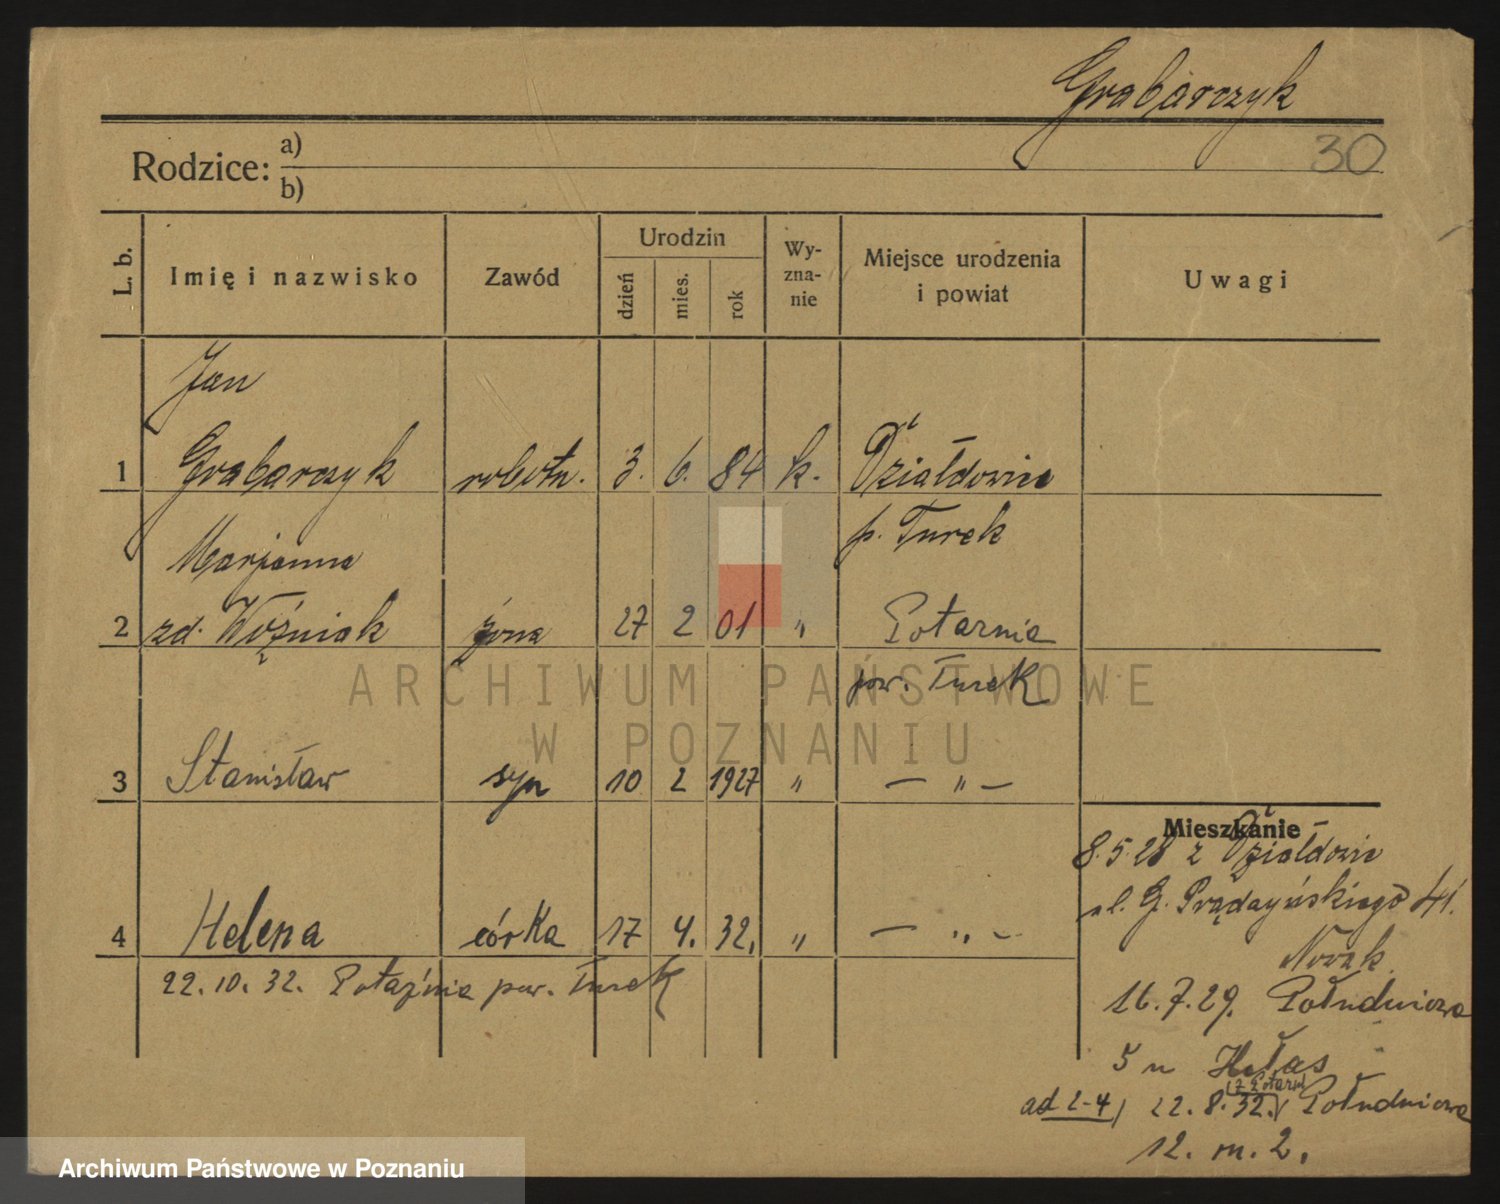 Grabarczyk
30
Rodzice: a)
b)
L. b. Imię i nazwisko Zawód Urodzin dzień mies. rok Wy-zna-nie Miejsce urodzenia i powiat Uwagi
Jan
1 Grabarczyk robotn. 3. 6. 84 k. Działdowice
p. Turek
Marjanna
2 zd. Woźniak żona 27 2 01 " Potarnia
pow. Turek
ARCHIWUM PAŃSTWOWE
W POZNANIU
3 Stanisław syn 10 2 1927 " — " —
Mieszkanie
8.5.28 z Działdowic
ul. G. Prądzyńskiego 41.
Nowak
4 Helena córka 17 4. 32. " — " —
22.10.32. pow. Turek
16.7.29. Południowa
5 u Hełas
(z Potarni)
ad 2-4) 22.8.32. Południowa
12. m. 2.
Archiwum Państwowe w Poznaniu